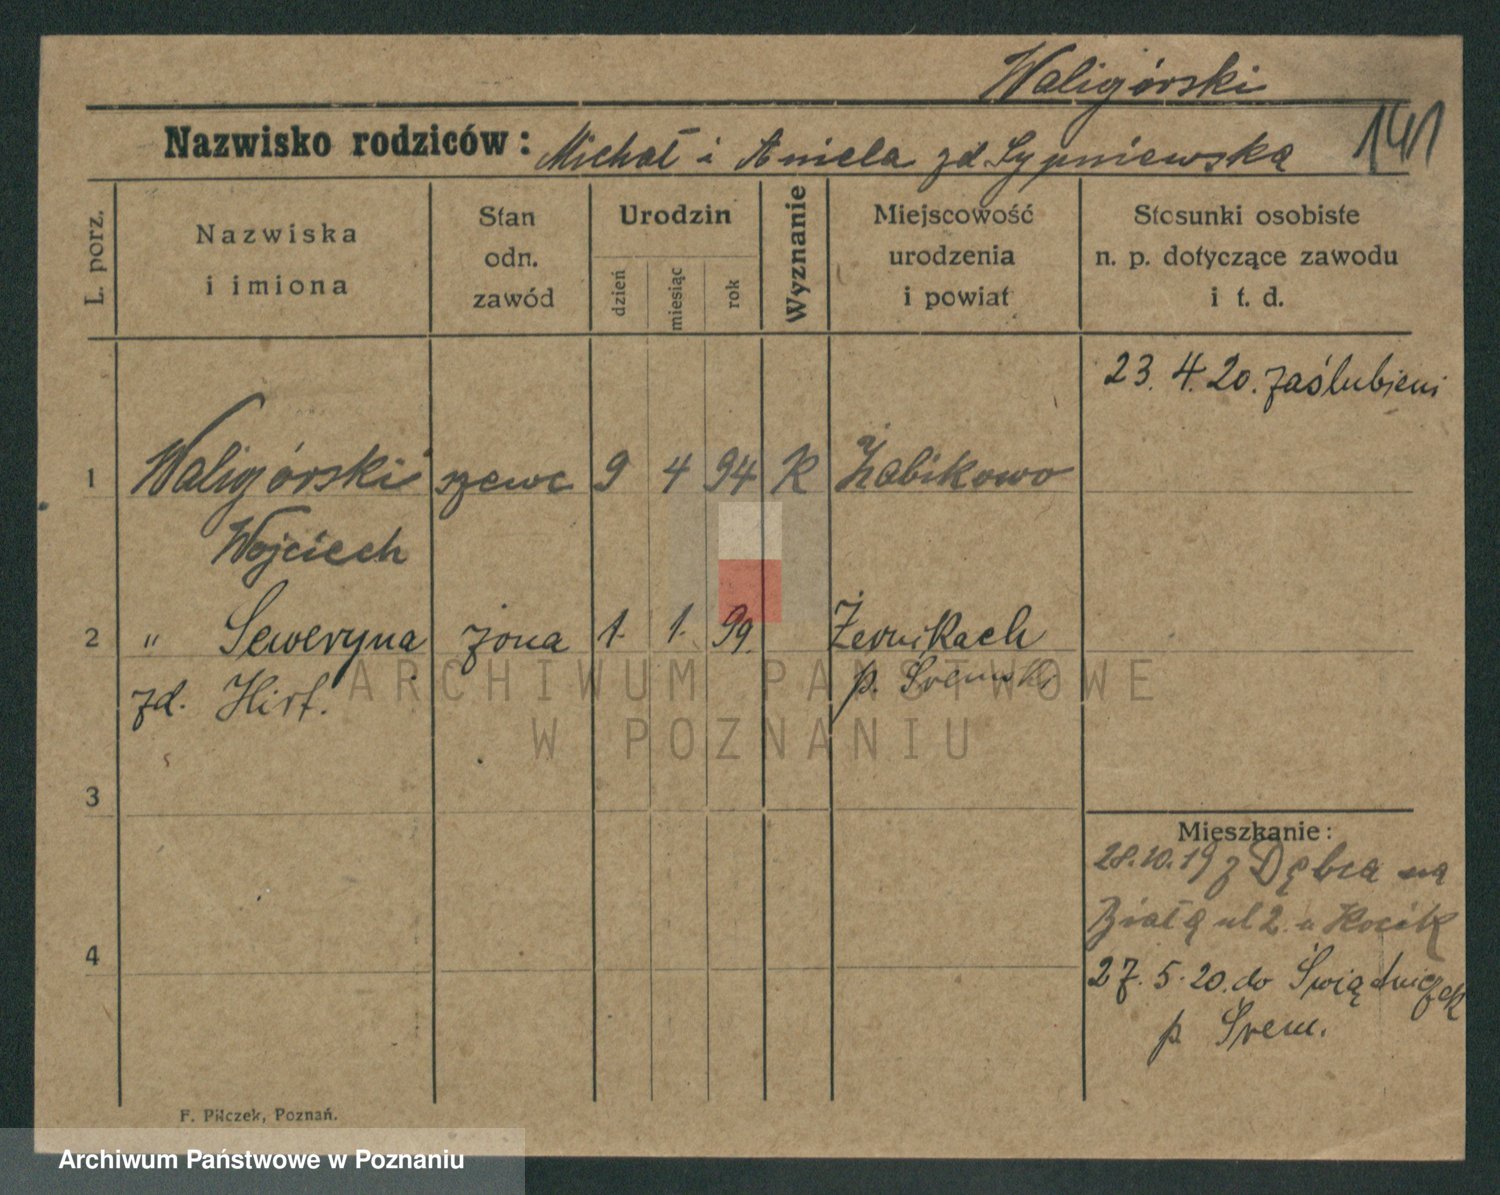 Waligórski
141
Nazwisko rodziców: Michał i Aniela zd. Sypniewską
L. porz.
Nazwiska
i imiona
Stan
odn.
zawód
Urodzin
dzień
miesiąc
rok
Wyznanie
Miejscowość
urodzenia
i powiat
Stosunki osobiste
n. p. dotyczące zawodu
i t. d.
23. 4. 20. zaślubieni
1 Waligórski szewc 9 4 94 K Żabikowo
Wojciech
2 " Seweryna żona 1. 1. 99. Żernikach
zd. Hirf. p. Śremski
3
Mieszkanie:
28.10.19 z Dębca na
Białą ul 2. u Kocik
4
27. 5. 20. do Świątniczek
p. Śrem.
F. Pilczek, Poznań.
ARCHIWUM PAŃSTWOWE
W POZNANIU
Archiwum Państwowe w Poznaniu